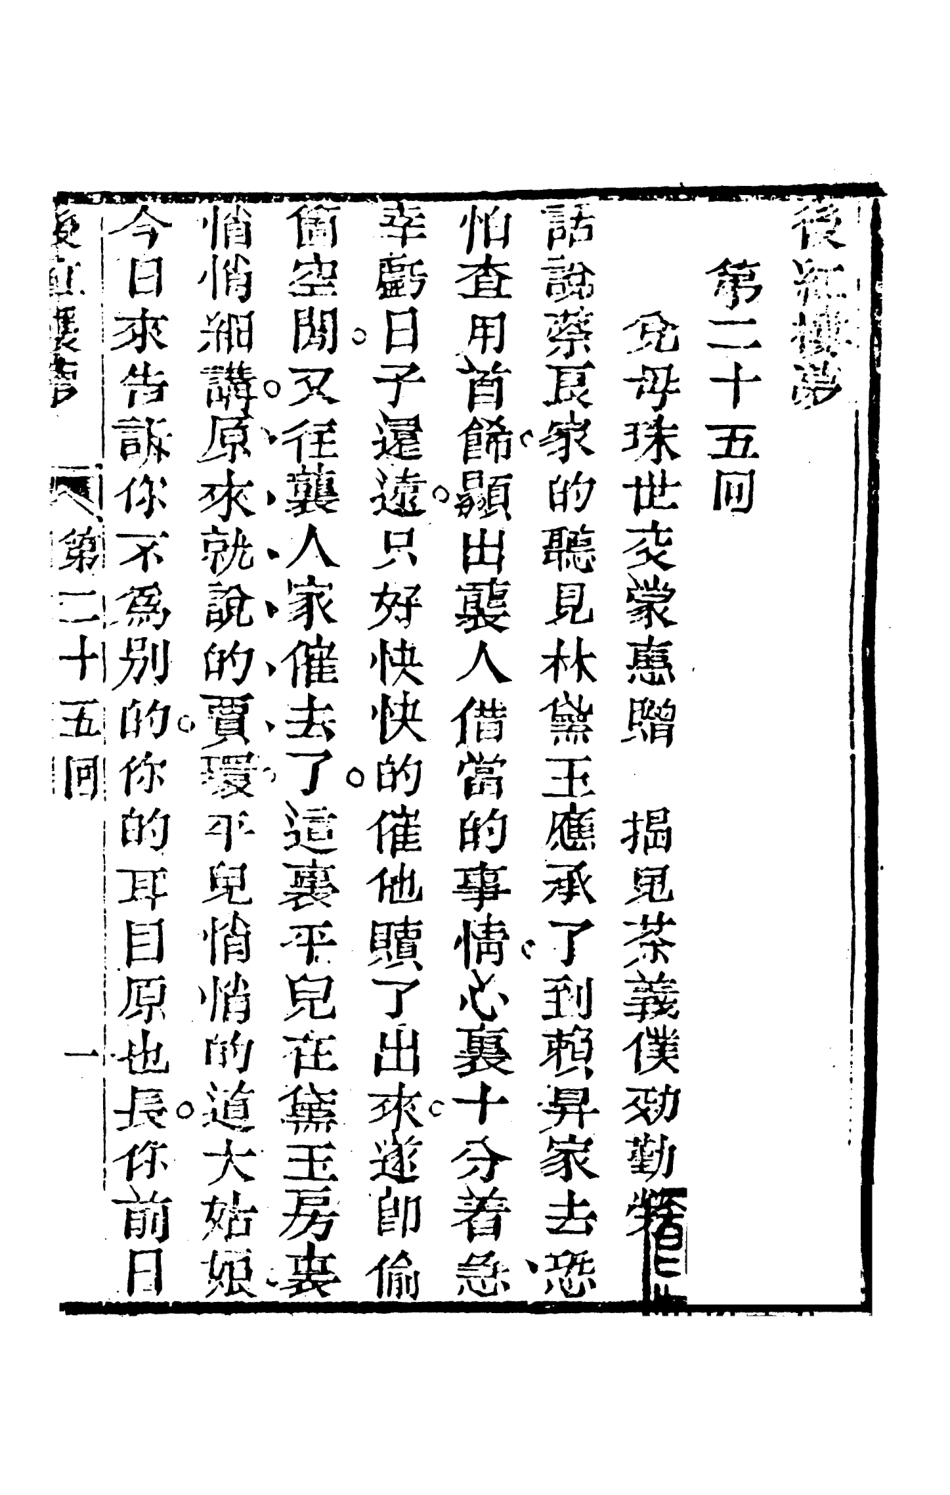 後紅樓夢
第二十五回
兔母珠世交蒙惠贈　揭見茶義僕効勤勞
話說蔡良家的聽見林黛玉應承了到賴昇家去恐
怕查用首餙顯出襲人借當的事情心裏十分着急
幸虧日子還遠只好快快的催他贖了出來遂卽偷
箇空閒又往襲人家催去了這裏平兒在黛玉房裏
悄悄細講原來就說的賈環平兒悄悄的道大姑娘
今日來告訴你不爲別的你的耳目原也長你前日
後紅樓夢　第二十五回　一